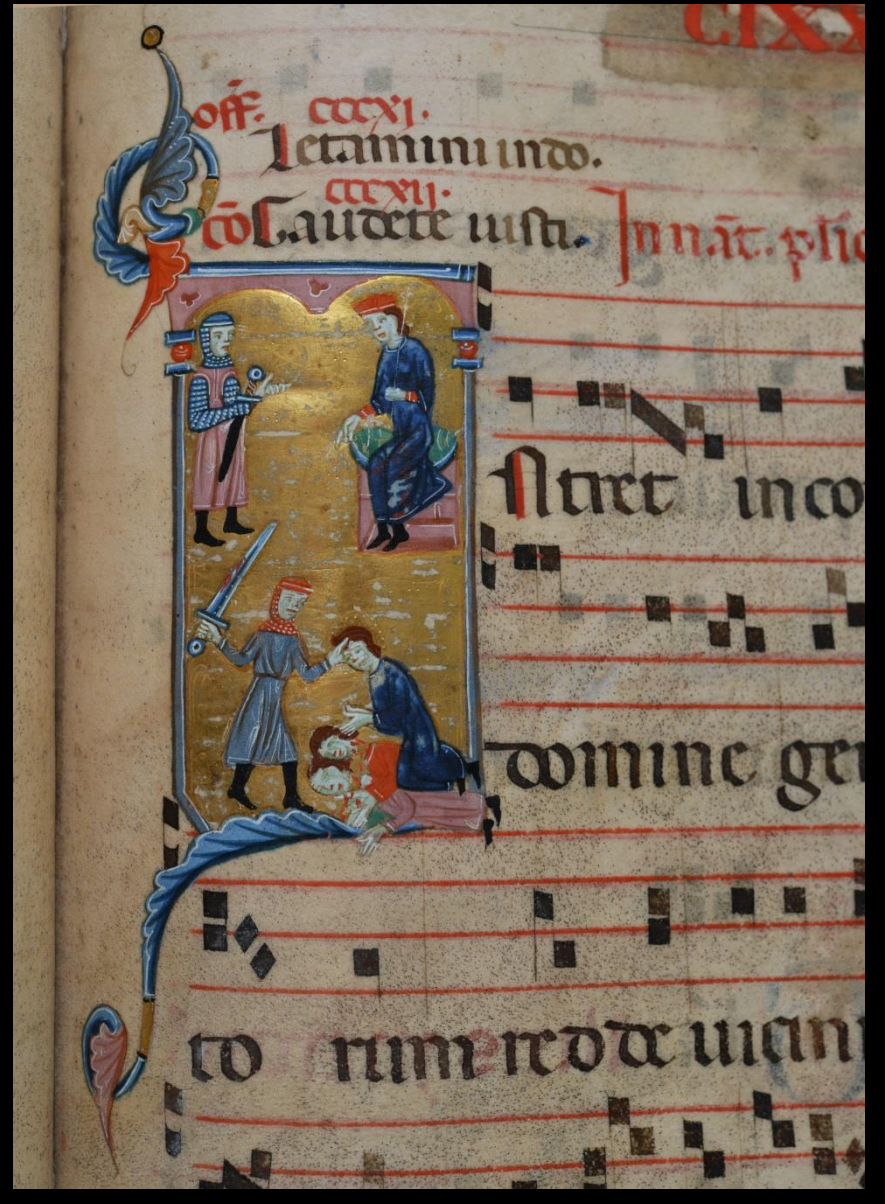 CLXX
off̄. cccxi.
Letamini in do.
cccxii.
cō Gaudete iusti. In nāt. pl̄io
Ntret in co
domine ge
to rum redde uicini